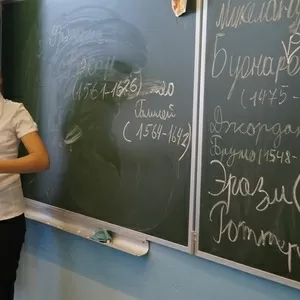 Френсис
Бэкон
(1561-1626)
Галилей
(1564-1642)
Микелан
Буонарр
(1475-
Джорда
Бруно (1548-
Эразм
Роттер